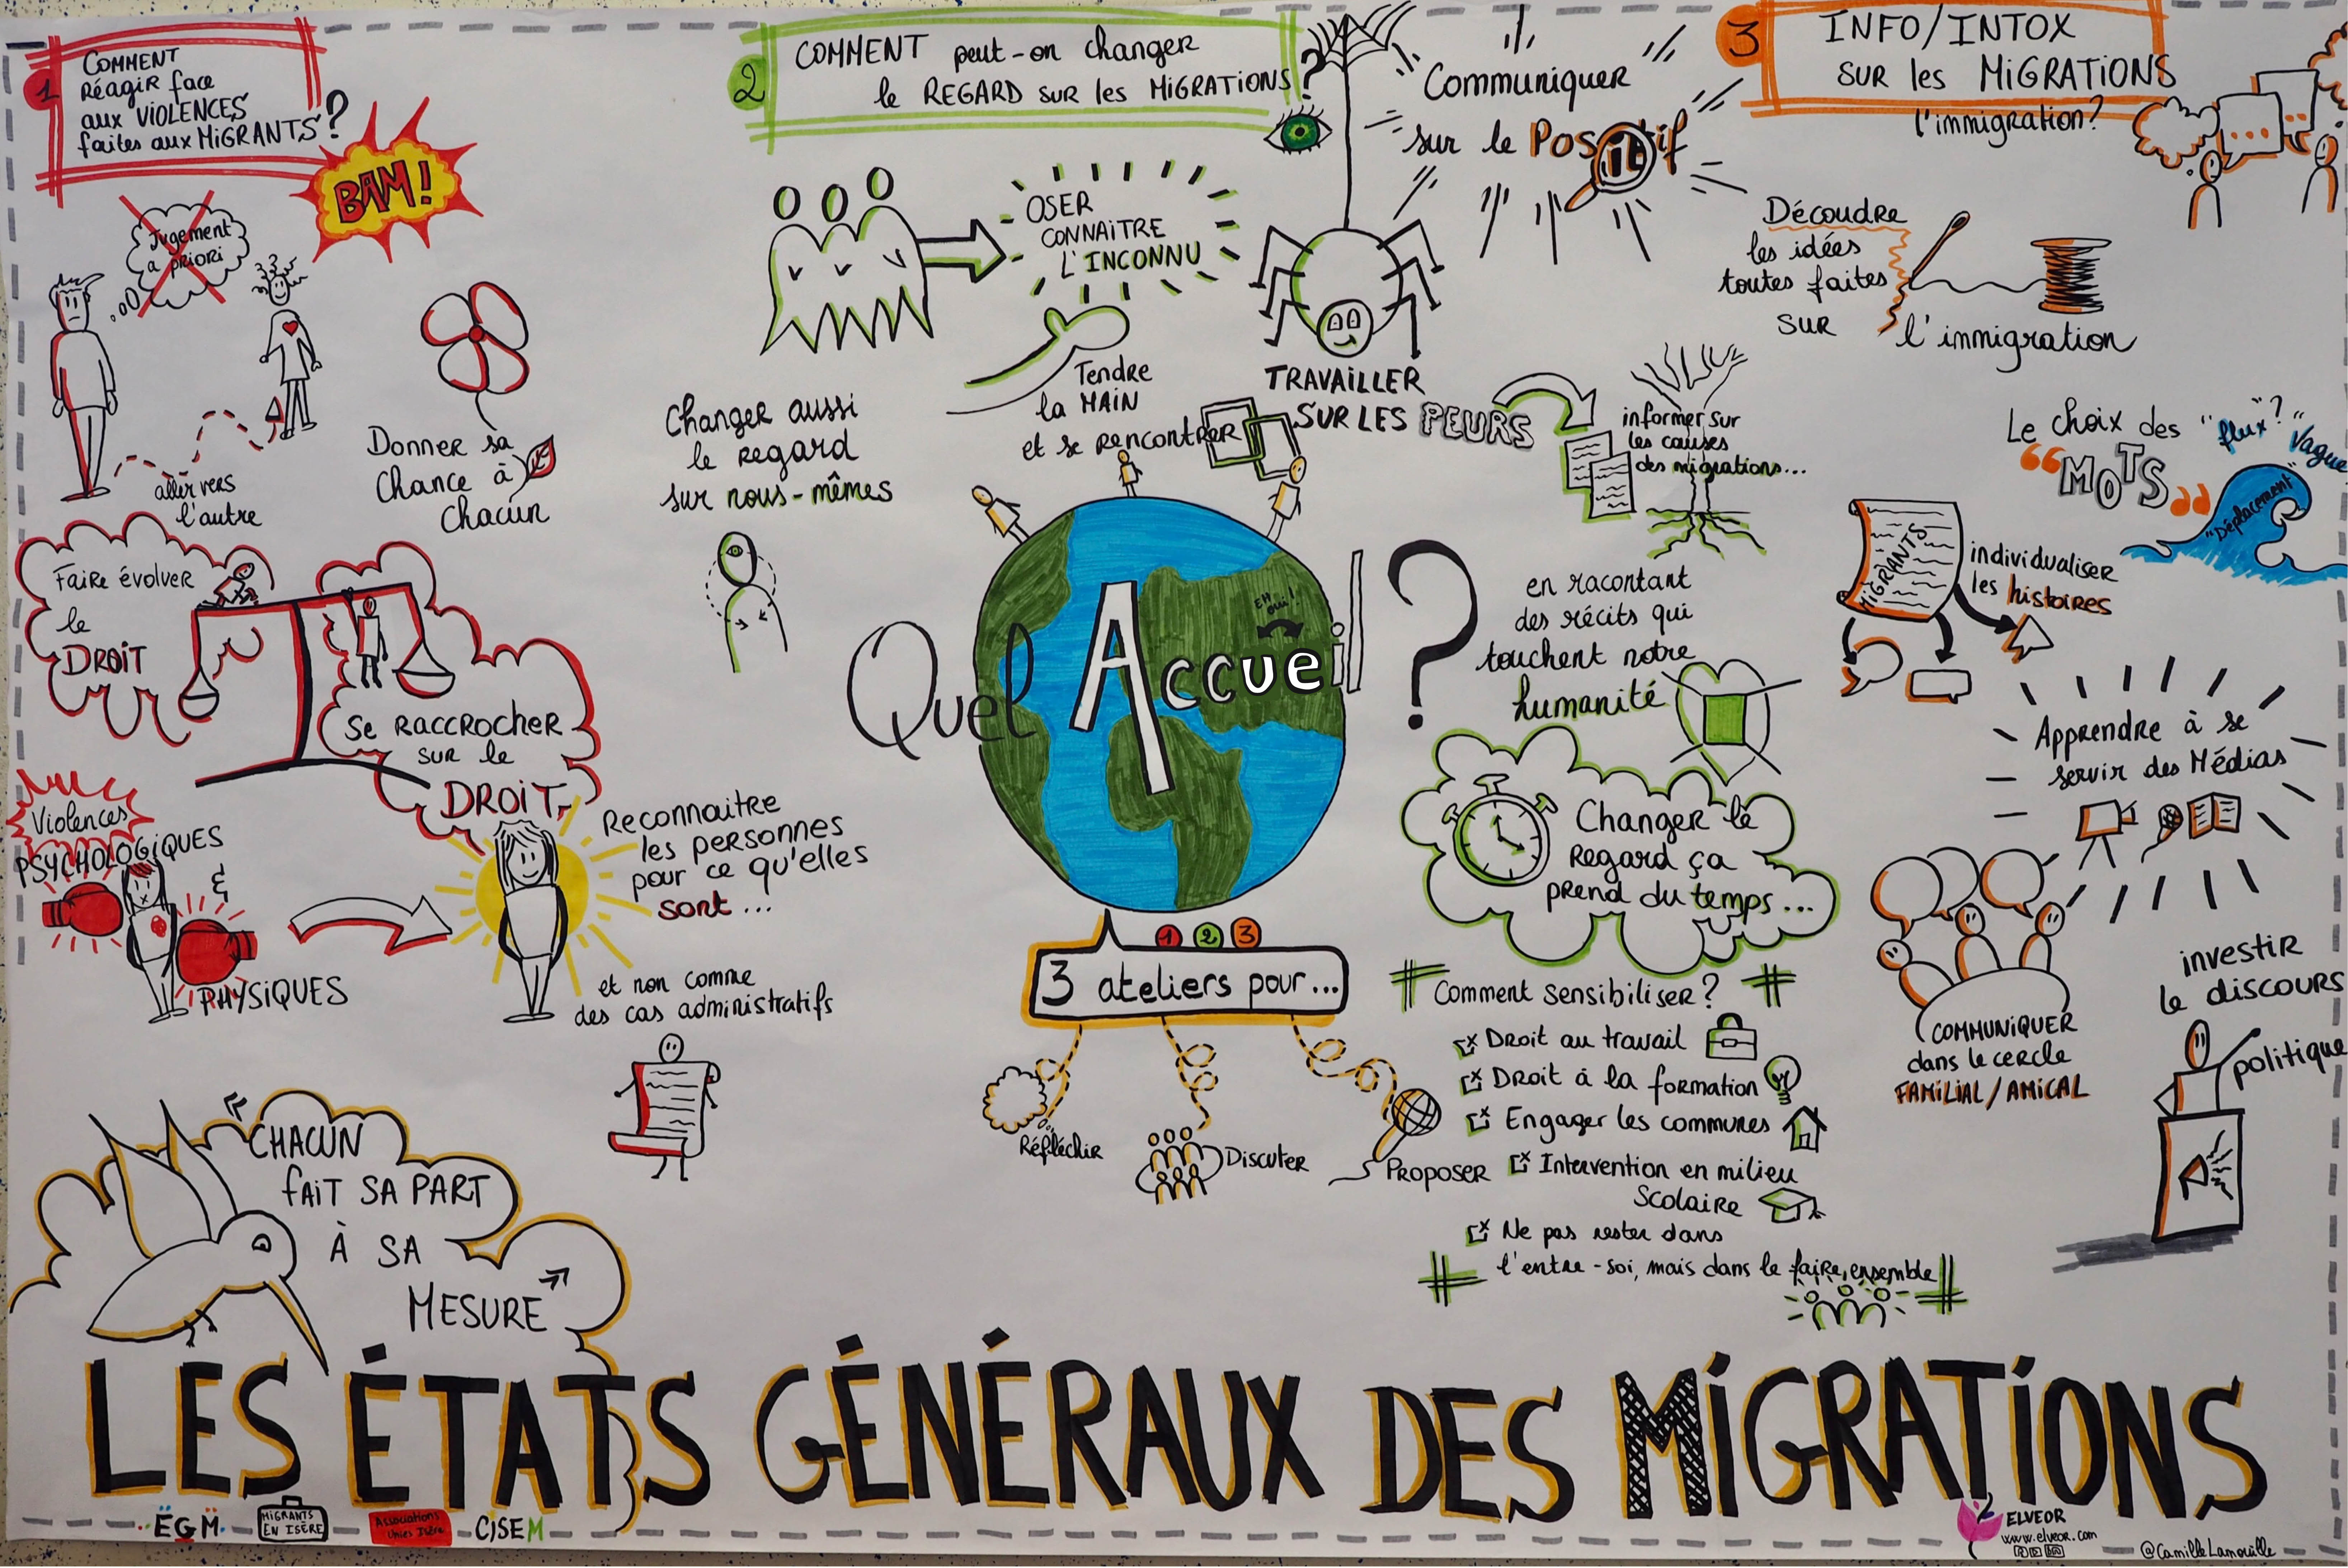 1
COMMENT
Réagir face
aux VIOLENCES
faites aux MIGRANTS ?
BAM!
Jugement
a priori
aller vers
l'autre
Donner sa
Chance à
Chacun
Faire évolver
le
DROIT
Se RACCROCHER
sur le
DROIT
Violences
PSYCHOLOGIQUES
&
PHYSIQUES
Reconnaitre
les personnes
pour ce qu'elles
sont ...
et non comme
des cas administratifs
«
CHACUN
FAIT SA PART
À SA
MESURE »
2
COMMENT peut-on changer
le REGARD sur les MIGRATIONS ?
OSER
CONNAITRE
L'INCONNU
Tendre
la MAIN
et se rencontrer
Changer aussi
le regard
sur nous-mêmes
Communiquer
sur le Positif
TRAVAILLER
SUR LES PEURS
informer sur
les causes
des migrations...
en racontant
des récits qui
touchent notre
humanité
Quel Accueil ?
EH oui!
Changer le
regard ça
prend du temps ...
1 2 3
3 ateliers pour...
Réfléchir
Discuter
Proposer
# Comment sensibiliser? #
Droit au travail
Droit à la formation
Engager les communes
Intervention en milieu
Scolaire
Ne pas rester dans
l'entre-soi, mais dans le faire ensemble
# #
3
INFO/INTOX
SUR les MIGRATIONS
l'immigration?
...
Découdre
les idées
toutes faites
sur
l'immigration
Le choix des
“MOTS”
"flux"?
"Vague"
"Déplacement"
MIGRANTS
individualiser
les histoires
Apprendre à se
servir des Médias
COMMUNIQUER
dans le cercle
FAMILIAL/AMICAL
investir
le discours
politique
LES ÉTATS GÉNÉRAUX DES MIGRATIONS
ËGM
MIGRANTS
EN ISÈRE
Associations
Unies Isère
CISEM
ELVEOR
www.elveor.com
@CamilleLamouille